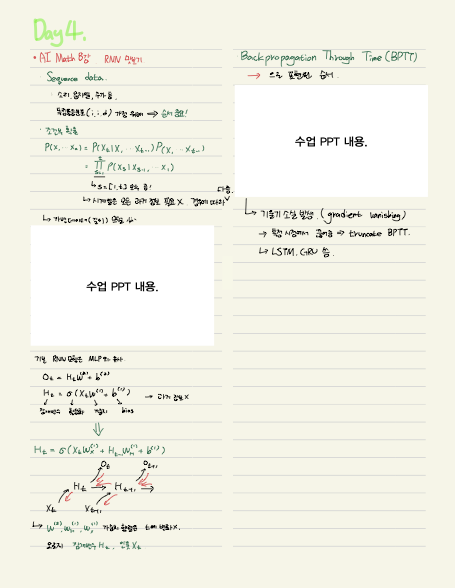 Day 4.
• AI Math 8강 RNN 맛보기
Sequence data.
· 소리, 문자열, 주가 등.
독립동등분포(i.i.d) 가정 위배 ⇒ 순서 중요!
· 조건부 확률
P(X₁, ⋯ Xₜ) = P(Xₜ|X₁, ⋯ Xₜ₋₁) P(X₁, ⋯ Xₜ₋₁)
= ∏ P(Xₛ|Xₛ₋₁, ⋯ X₁)
↳ s = [1, t] 모두 곱!
다름.
↳ 시계열은 모든 과거 정보 필요 X. 경우에 따라
↳ 가변
수업 PPT 내용.
기본 RNN 모형은 MLP와 유사.
Oₜ = HₜW⁽²⁾ + b⁽²⁾
Hₜ = σ(XₜW⁽¹⁾ + b⁽¹⁾) → 과거 정보 X
잠재변수 활성화 가중치 bias
⇓
Hₜ = σ(XₜWₓ⁽¹⁾ + Hₜ₋₁W_H⁽¹⁾ + b⁽¹⁾)
Oₜ Oₜ₊₁
Hₜ → Hₜ₊₁ →
Xₜ Xₜ₊₁
↳ W⁽²⁾, W_H⁽¹⁾, Wₓ⁽¹⁾ 가중치 행렬은 t에 변화 X.
오로지 잠재변수 Hₜ, 인풋 Xₜ
Backpropagation Through Time (BPTT)
→ 으로 표현된 순서.
수업 PPT 내용.
↳ 기울기 소실 발생. (gradient vanishing)
→ 특정 시점에서 끊어줌 ⇒ truncate BPTT.
↳ LSTM, GRU 씀.